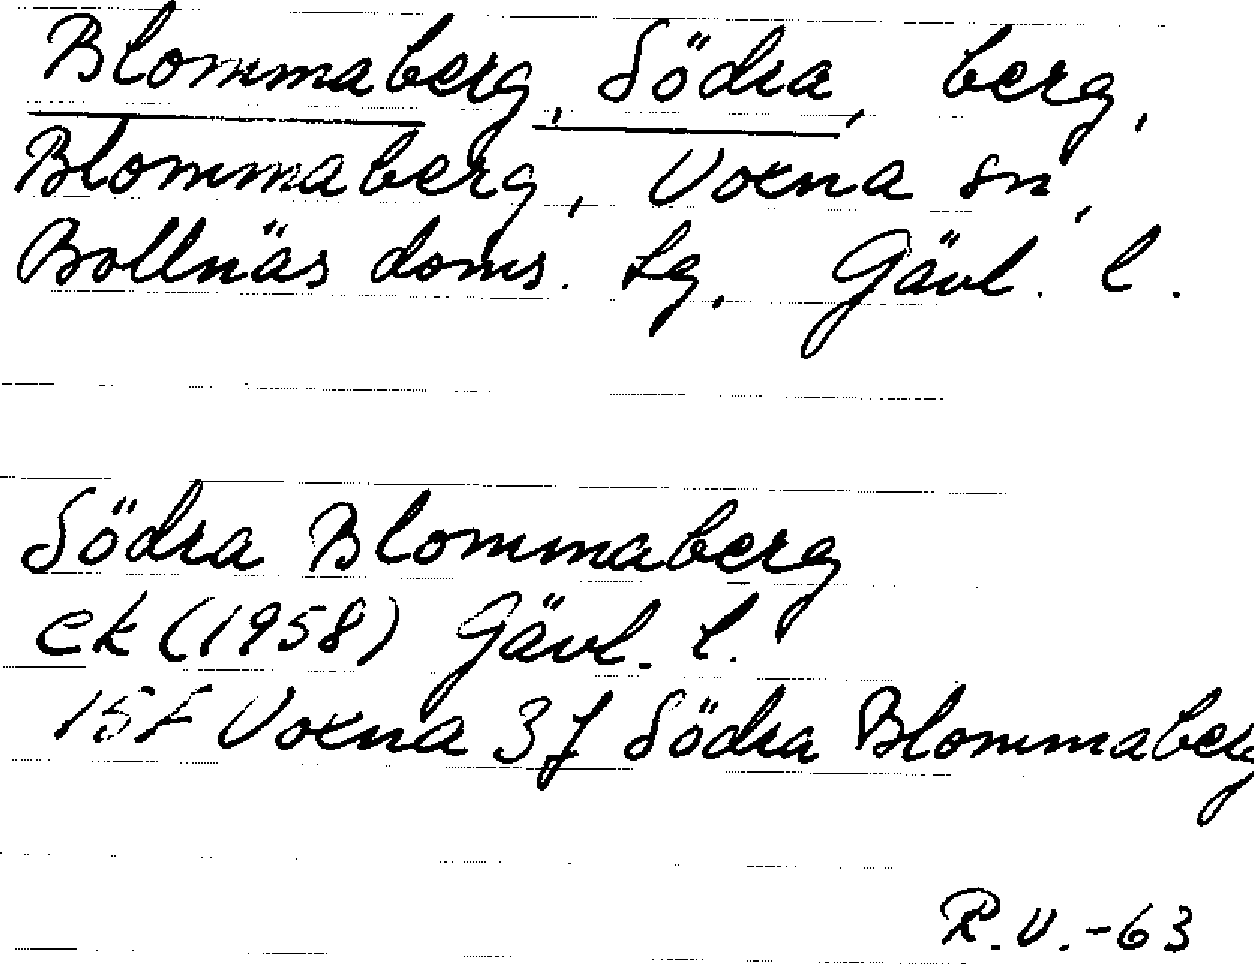 Blommaberg, Södra, berg,
Blommaberg, Voxna sn,
Bollnäs doms. tg, Gävl. l.
Södra Blommaberg
ek (1958) Gävl. l.
15F Voxna 3f Södra Blommaberg
R.V.-63